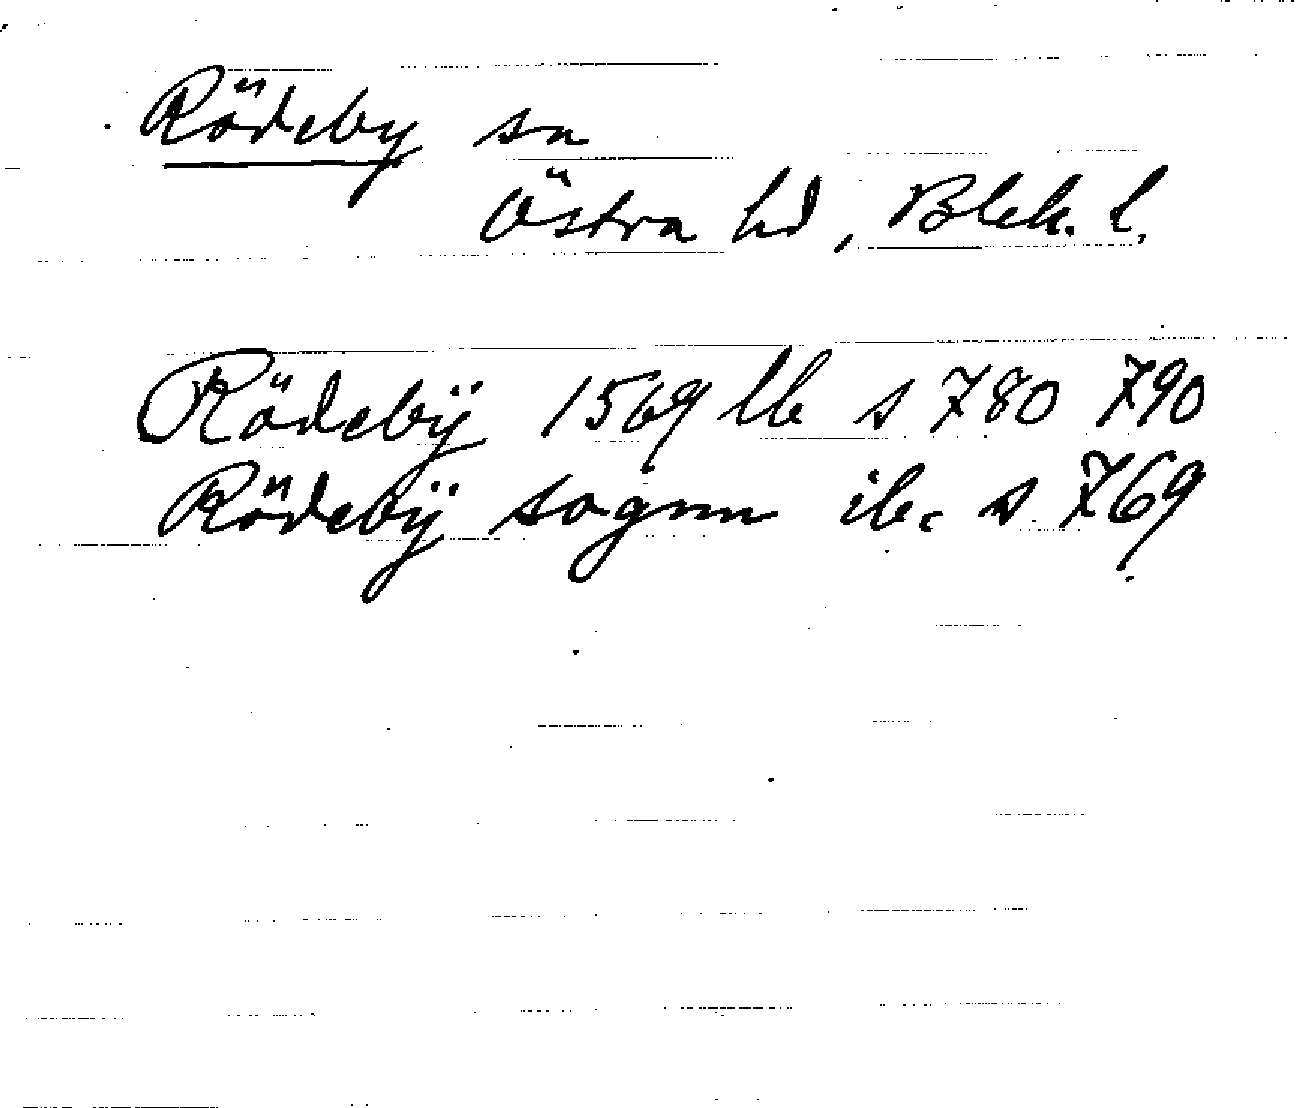 Rödeby sn
Östra hd, Blek. l.
Rödebÿ 1569 llb s 780 790
Rödebÿ sognn ib. s 769